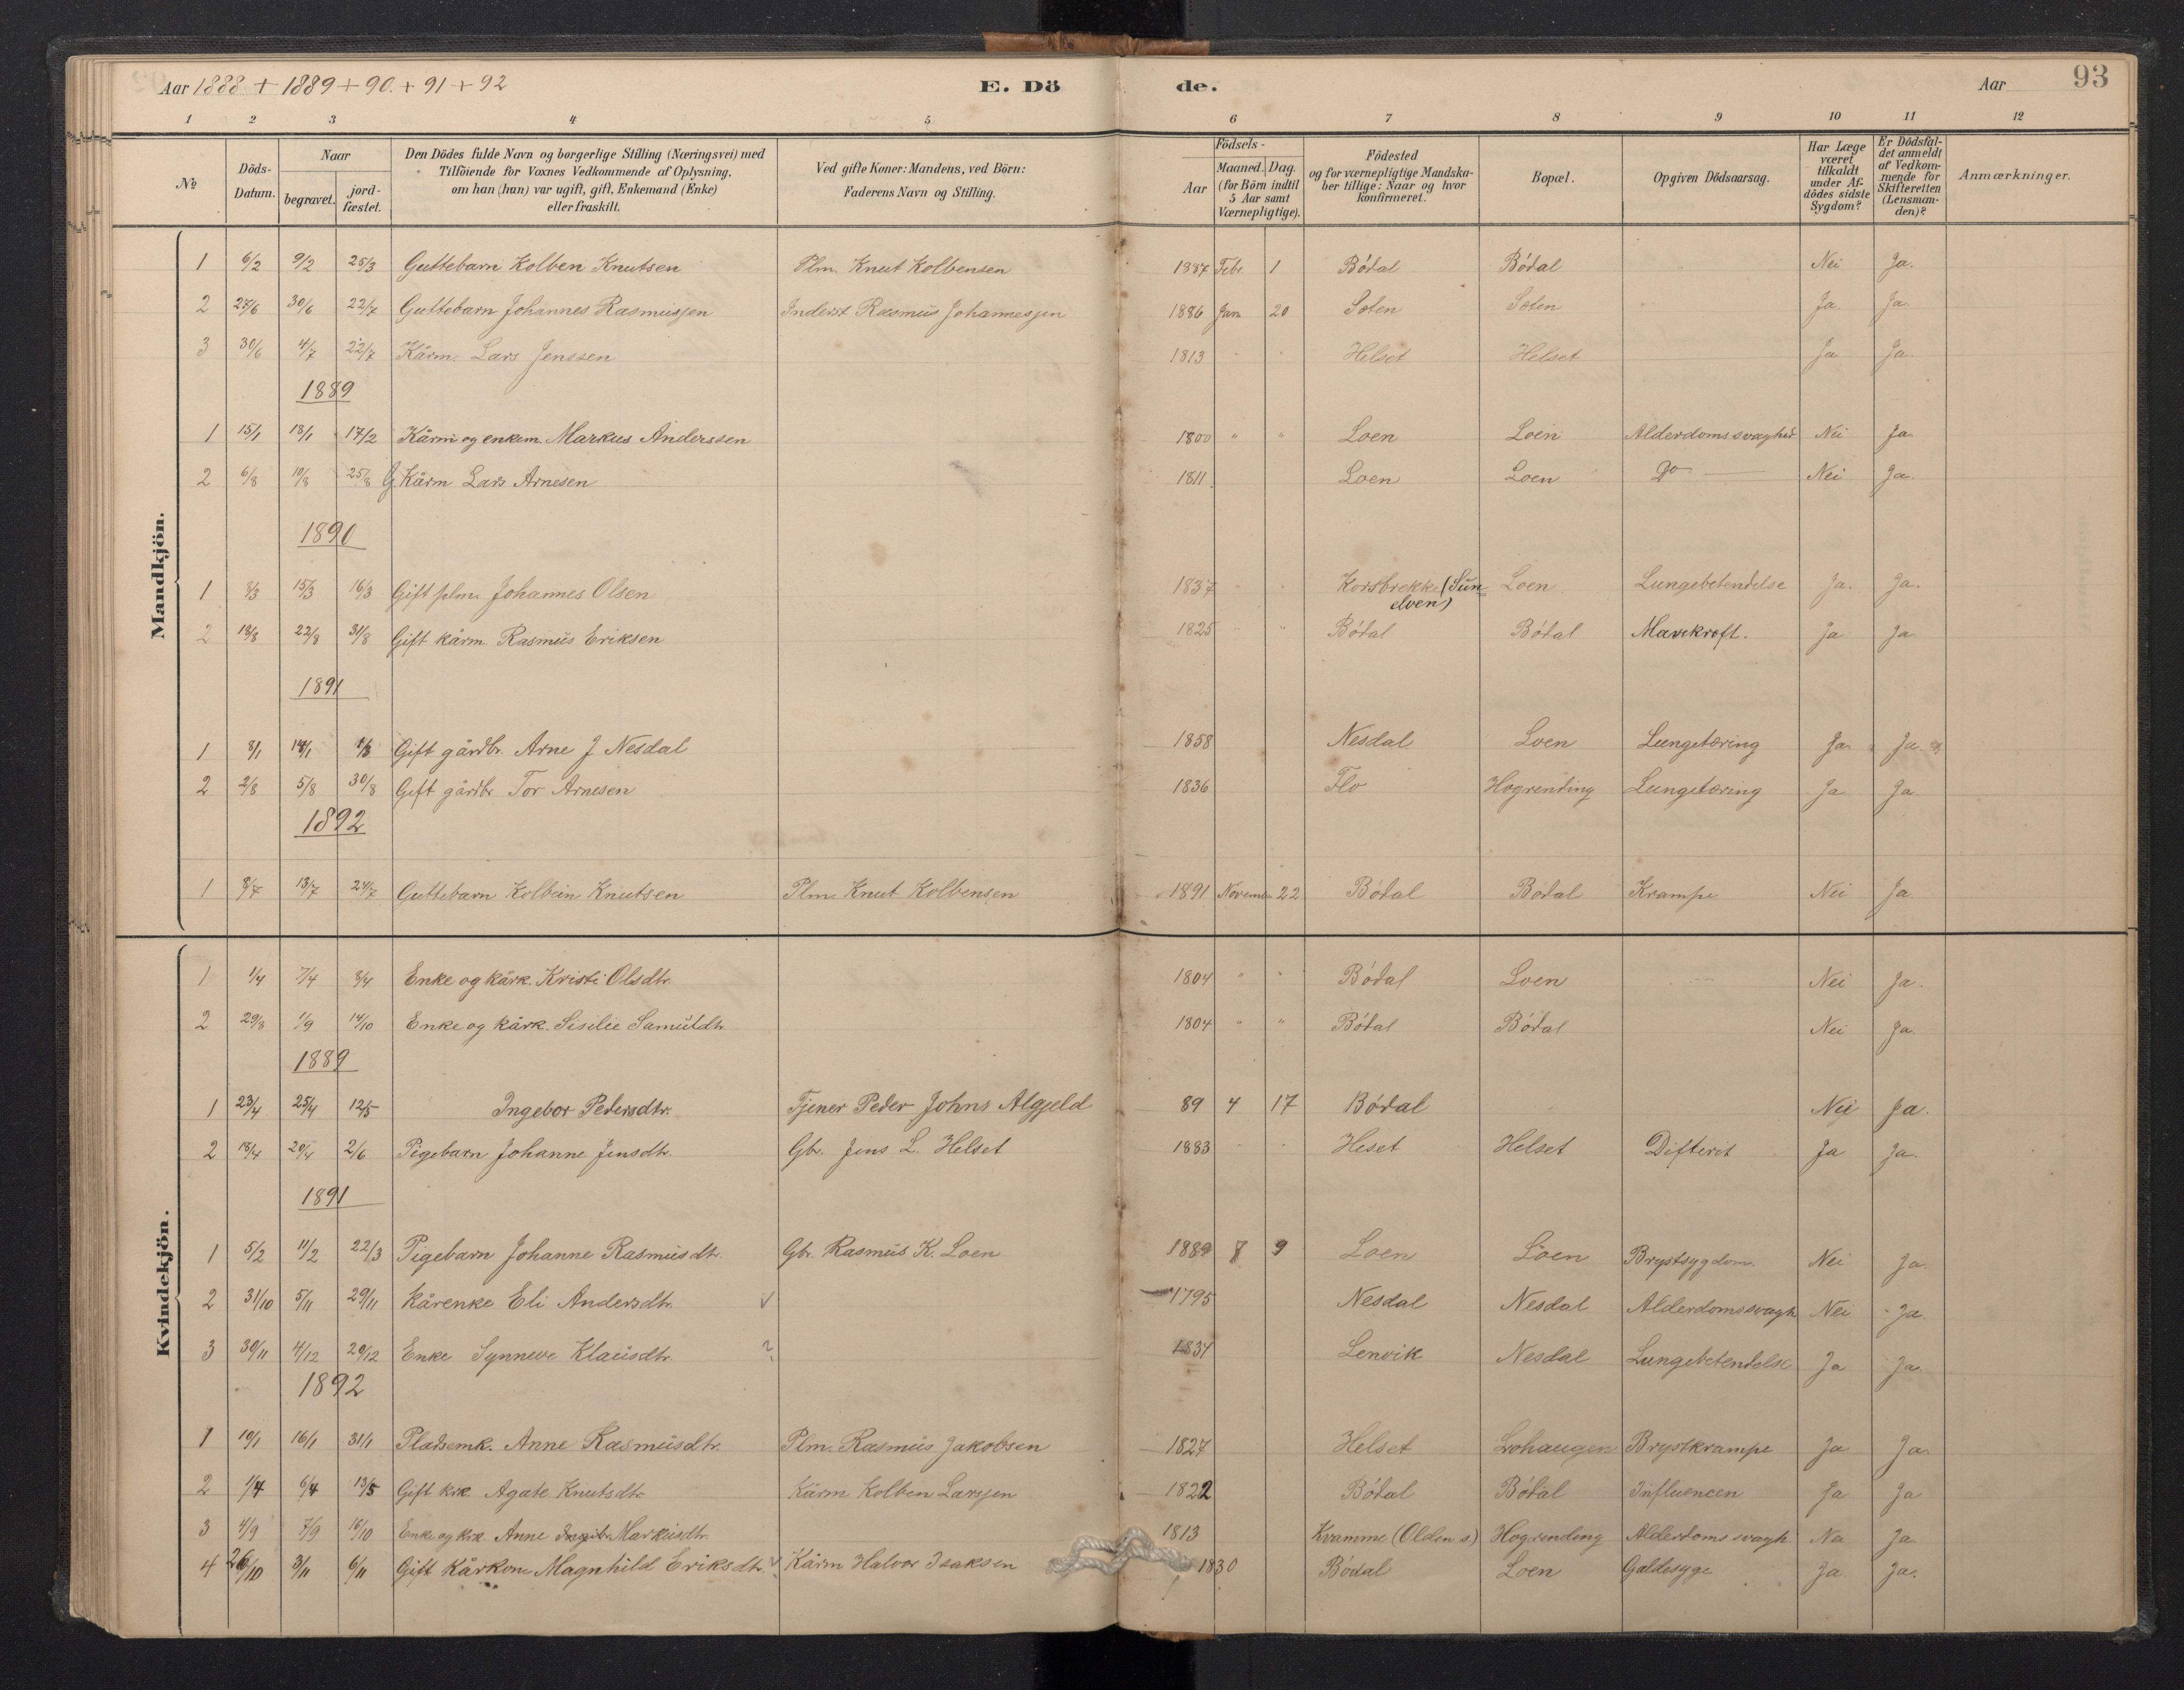 Aar 1888 + 1889 + 90. + 91 + 92 E. Dö de. Aar 93
1 2 3 4 5 6 7 8 9 10 11 12
No
Döds-Datum.
Naar
begravet. jordfæstet.
Den Dödes fulde Navn og borgerlige Stilling (Næringsvei) med
Tilföiende for Voxnes Vedkommende af Oplysning,
om han (hun) var ugift, gift, Enkemand (Enke)
eller fraskilt.
Ved gifte Koner: Mandens, ved Börn:
Faderens Navn og Stilling.
Födsels-
Aar
Maaned. Dag.
(for Börn indtil
5 Aar samt
Værnepligtige).
Födested
og for værnepligtige Mandska-
ber tillige: Naar og hvor
konfirmeret.
Bopæl.
Opgiven Dödsaarsag.
Har Læge
været
tilkaldt
under Af-
dödes sidste
Sygdom?
Er Dödsfal-
det anmeldt
af Vedkom-
mende for
Skifteretten
(Lensman-
den)?
Anmærkninger.
Mandkjön.
1 6/2 9/2 25/3 Guttebarn Kolben Knutsen Plm. Knut Kolbensen 1887 Febr. 1 Bódal Bódal Nei Ja.
2 27/6 30/6 22/7 Guttebarn Johannes Rasmussen Inderst Rasmus Johannesjen 1886 Jan 20 Sæten Sæten Ja. Ja.
3 30/6 4/7 22/7 Kårm. Lars Jenssen 1813 " " Helset Helset Ja Ja.
1889
1 15/1 18/1 17/2 Kårm og enkem. Markus Anderssen 1800 " " Loen Loen Alderdomssvaghed Nei Ja
2 6/8 10/8 25/8 G Kårm Lars Arnesen 1811 Loen Loen Do Nei Ja.
1890
1 8/3 15/3 16/3 Gift plm. Johannes Olsen 1837 " " Korsbrekke (Sun- Loen Lungebetendelse Ja. Ja.
elven)
2 18/8 22/8 31/8 Gift kårm. Rasmus Eriksen 1825 " " Bódal Bódal Mavekræft. Ja Ja
1891
1 8/1 14/1 1/3 Gift gårdbr. Arne J Nesdal 1858 Nesdal Loen Lungetæring Ja Ja
2 2/8 5/8 30/8 Gift gårdbr Tor Arnesen 1836 Flo Hogrending Lungetæring Ja Ja
1892
1 8/7 13/7 24/7 Guttebarn Kolbein Knutsen Plm. Knut Kolbensen 1891 Novembr 22 Bódal Bódal Krampe Nei Ja
Kvindekjön.
1 1/4 7/4 8/4 Enke og kårk. Kristi Olsdtr. 1804 " " Bódal Loen Nei Ja.
2 29/8 1/9 14/10 Enke og kårk. Sisilie Samuldtr. 1804 " " Bódal Bódal Nei Ja.
1889
1 23/4 25/4 12/5 Ingebor Pedersdtr. Tjener Peder Johns Algjeld 89 4 17 Bódal Nei Ja.
2 18/4 20/4 2/6 Pigebarn Johanne Jensdtr. Gbr. Jens L. Helset 1883 " " Heset Helset Difterit Ja Ja.
1891
1 5/2 11/2 22/3 Pigebarn Johanne Rasmusdtr. Gbr. Rasmus K. Loen 1889 8 9 Loen Loen Brystsygdom. Nei Ja.
2 31/10 5/11 29/11 Kårenke Eli Andersdtr. v 1795 Nesdal Nesdal Alderdomssvagh Nei Ja.
3 30/11 4/12 20/12 Enke Synneve Klausdtr. ? 1834 Lenvik Nesdal Lungebetendelse Ja Ja.
1892
1 10/1 16/1 31/1 Pladsemk. Anne Rasmusdtr. Plm. Rasmus Jakobsen 1827 Helset Lohaugen Brystkrampe Ja Ja.
2 1/4 6/4 13/5 Gift krk. Agate Knutsdtr. Kårm Kolben Larsjen 1822 Bódal Bódal Influencen Ja Ja
3 4/9 7/9 16/10 Enke og krk. Anne Ingibr Markusdtr. 1813 Kvamme (Olden s) Hogrending Alderdoms svagh. Nei Ja.
4 26/10 3/11 6/11 Gift Kårkone Magnhild Eriksdtr. v Kårm Halvor Isaksen 1830 Bódal Loen Galdesyge Ja. Ja.